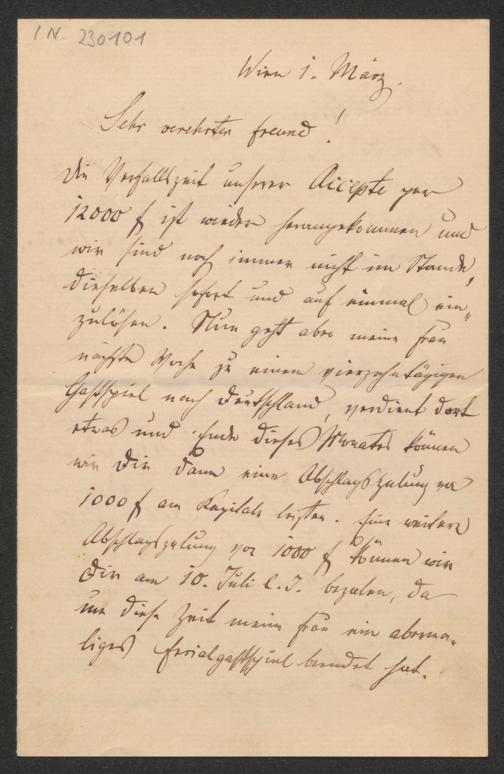 I.N. 230101
Wien 1. März.
Sehr verehrter Freund!
Die Verfallszeit unserer Accepte per
12000 f ist wieder herangekommen und
wir sind noch immer nicht im Stande,
dieselben sofort und auf einmal ein„
zulösen. Nun geht aber meine Frau
nächste Woche zu einem vierzehntägigen
Gastspiel nach Deutschland, verdient dort
etwas und Ende dieses Monates können
wir Dir dann eine Abschlagszalung von
1000 f am Kapitale leisten. Eine weitere
Abschlagszalung von 1000 f können wir
Dir am 10. Juli l. J. bezalen, da
um diese Zeit meine Frau ein aberma„
liges Ferialgastspiel beendet hat.